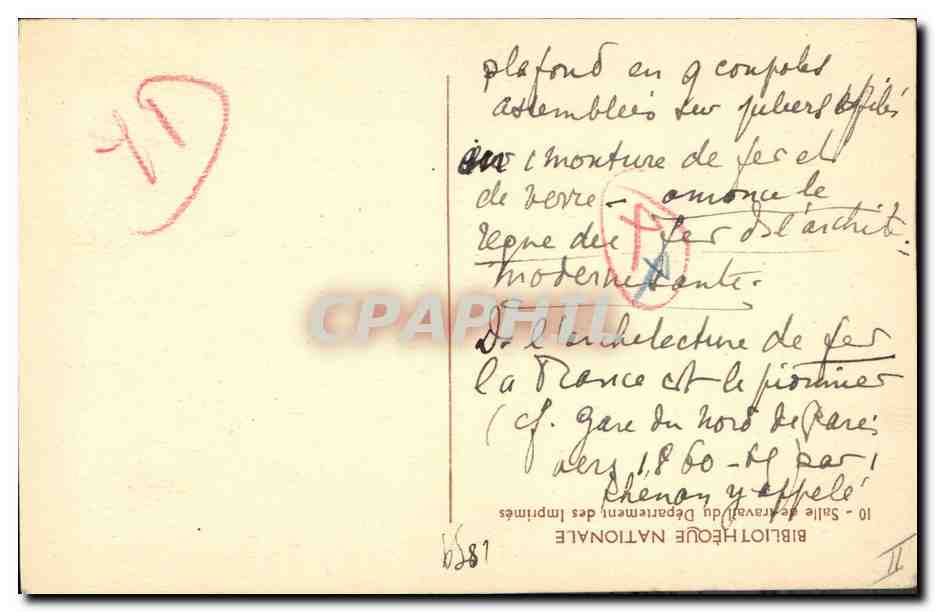 plafond en 9 coupoles
assemblées sur piliers effilés
sur 1 monture de fer et
de verre – annonce le
règne du fer ds l'archit.
modernisante.
Ds l'architecture de fer
la France est le pionnier
(cf. Gare du Nord de Paris
vers 1860 – par 1
Rhénan y appelé
10 - Salle de travail du Département des Imprimés
BIBLIOTHÈQUE NATIONALE
II
CPAPHIL